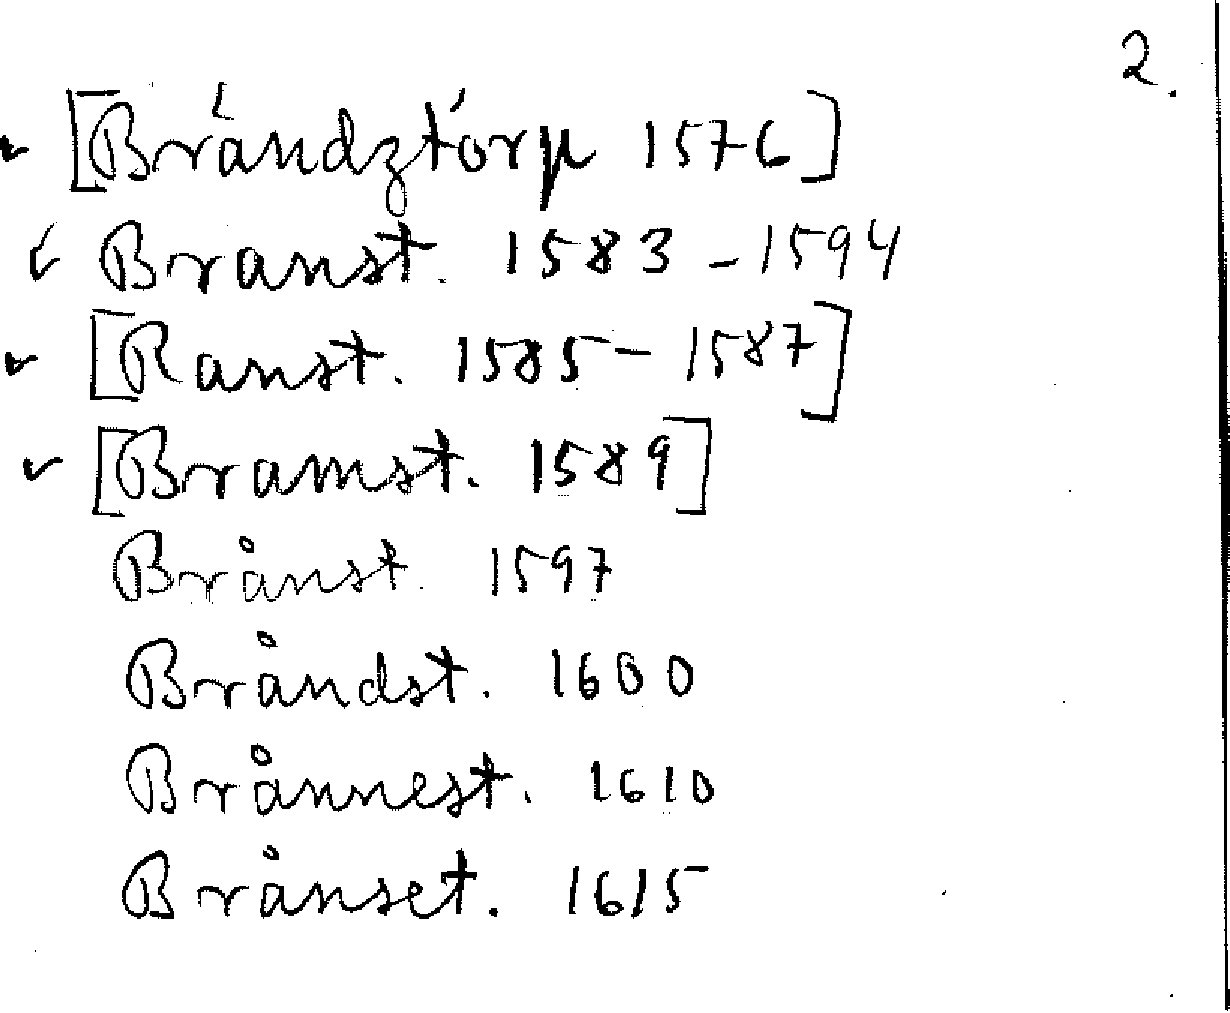 2.
[Brändztörp 1576]
Branst. 1583-1594
[Ranst. 1585-1587]
[Bramst. 1589]
Brånst. 1597
Bråndst. 1600
Brånnest. 1610
Brånset. 1615